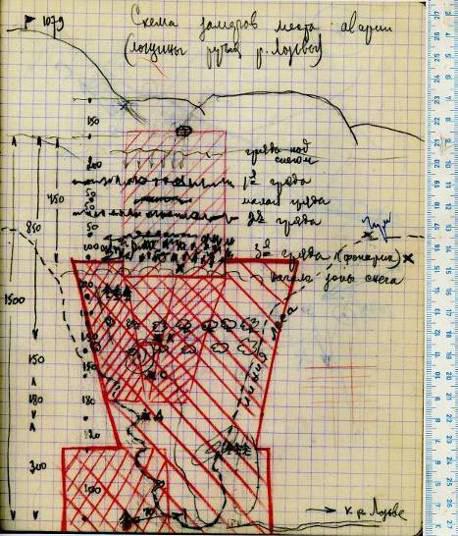 1079
Схема замеров места аварии
(лощины ручья р. Лозьвы)
150
200
гряда под
снегом
50
1я гряда
50
малая гряда
50
2я гряда
50
450
850
100
3я гряда (фонарик)
начало зоны снега
1500
линия леса
150
150
180
180
120
300
100
70
к р. Лозьве